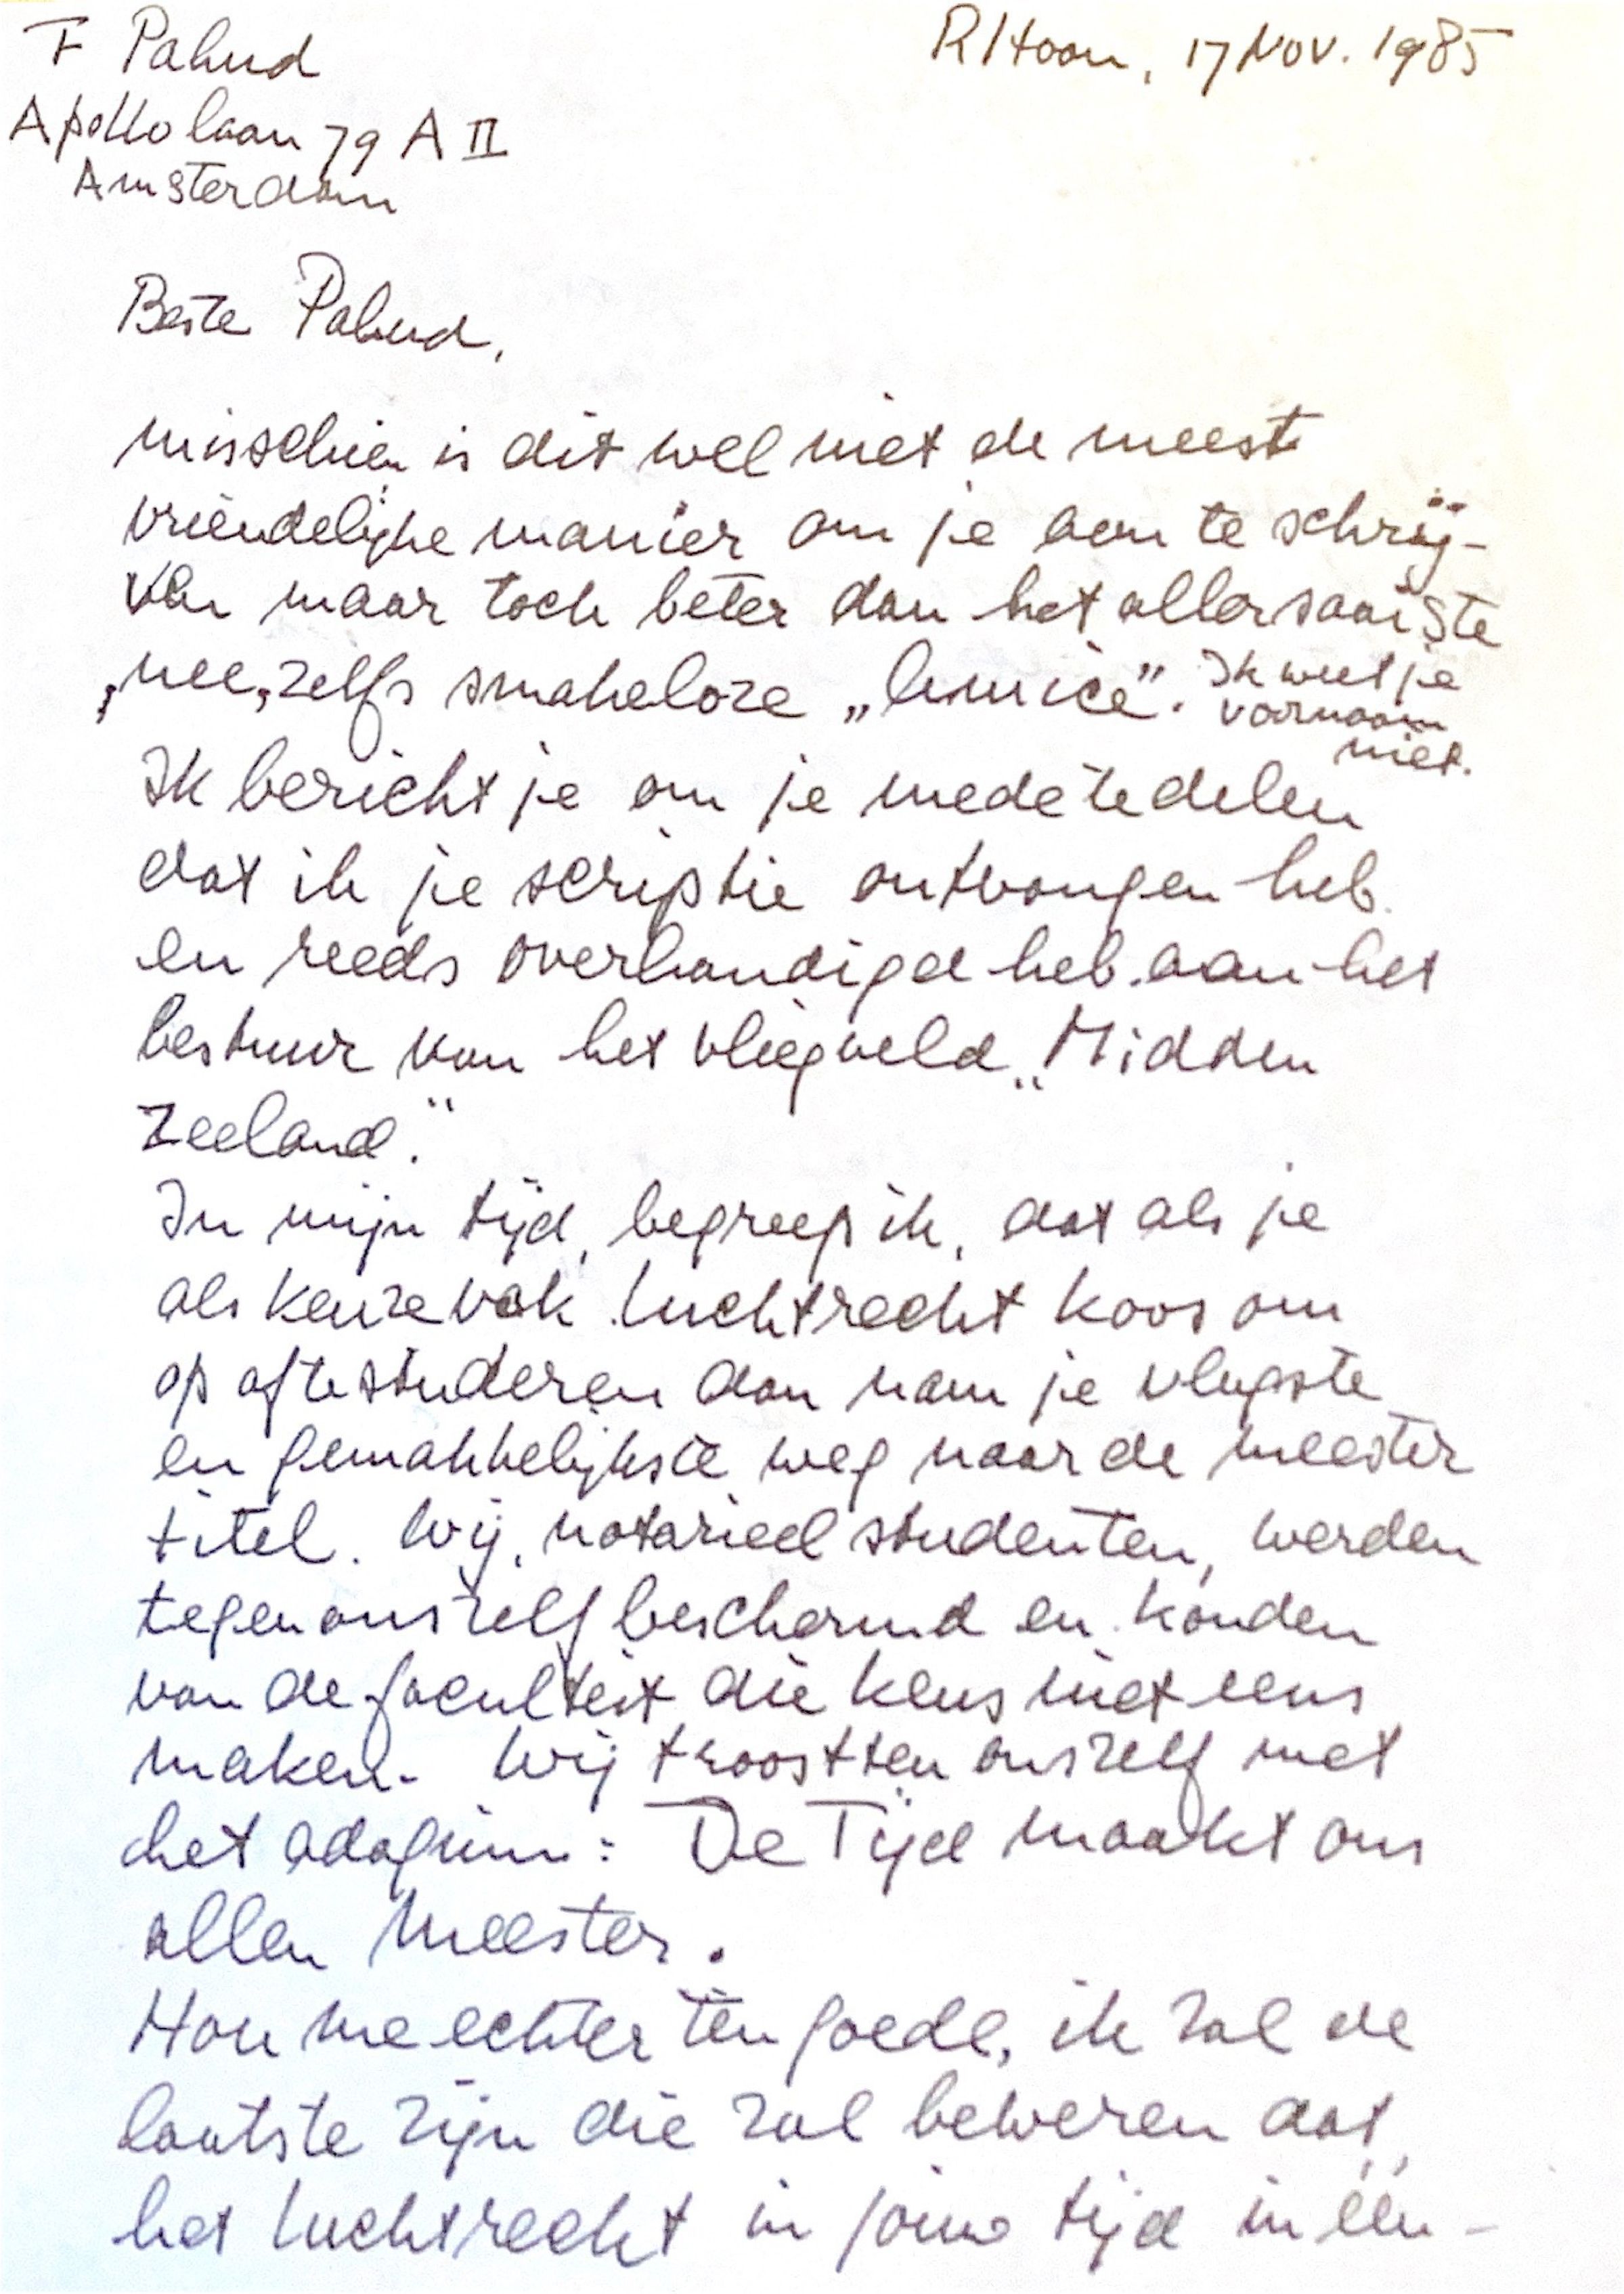 F Pahud
R/Hoon, 17 Nov. 1985
Apollolaan 79 A II
Amsterdam
Beste Pahud,
misschien is dit wel niet de meest
vriendelijke manier om je aan te schrij-
ven maar toch beter dan het allersaaiste
, nee, zelfs smakeloze „Amice”. Ik weet je
voornaam
niet.
Ik bericht je om je mede te delen
dat ik je scriptie ontvangen heb
en reeds overhandigd heb aan het
bestuur van het vliegveld „Midden
Zeeland.”
In mijn tijd, begreep ik, dat als je
als keuzevak luchtrecht koos om
op af te studeren dan nam je vlugste
en gemakkelijkste weg naar de meester
titel. Wij, notarieel studenten, werden
tegen onszelf beschermd en konden
van de faculteit die keus niet eens
maken. Wij troostten onszelf met
het adagium: De Tijd maakt ons
allen Meester.
Hou me echter ten goede, ik zal de
laatste zijn die zal beweren dat
het luchtrecht in jouw tijd in één-